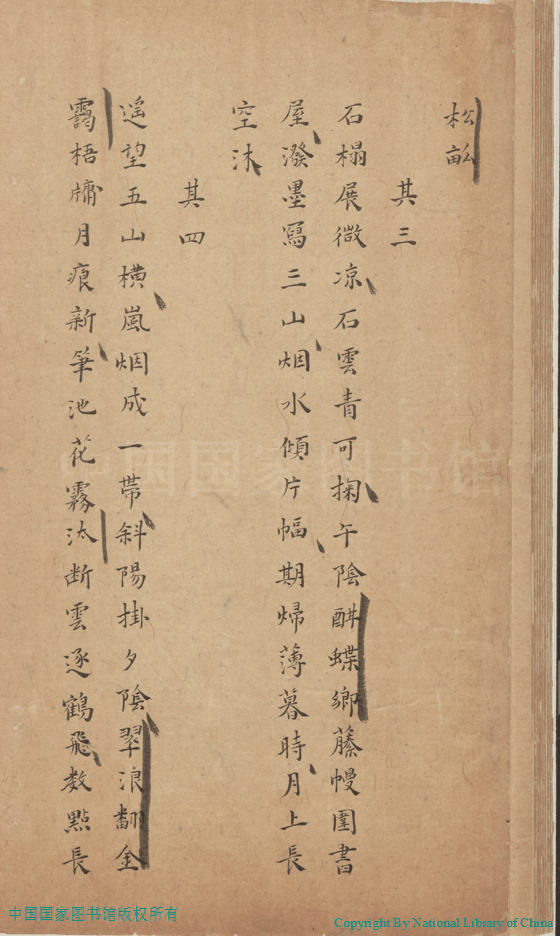 松畝
其三
石榻展微凉石雲青可掬午陰酣蝶鄉藤幔圍書
屋潑墨寫三山烟水傾片幅期歸薄暮時月上長
空沐
其四
遥望五山橫嵐烟成一帶斜陽掛夕陰翠浪翻金
靄梧牗月痕新筆池花霧汰断雲逐鶴飛数點長
中国国家图书馆
中国国家图书馆版权所有
Copyright By National Library of China